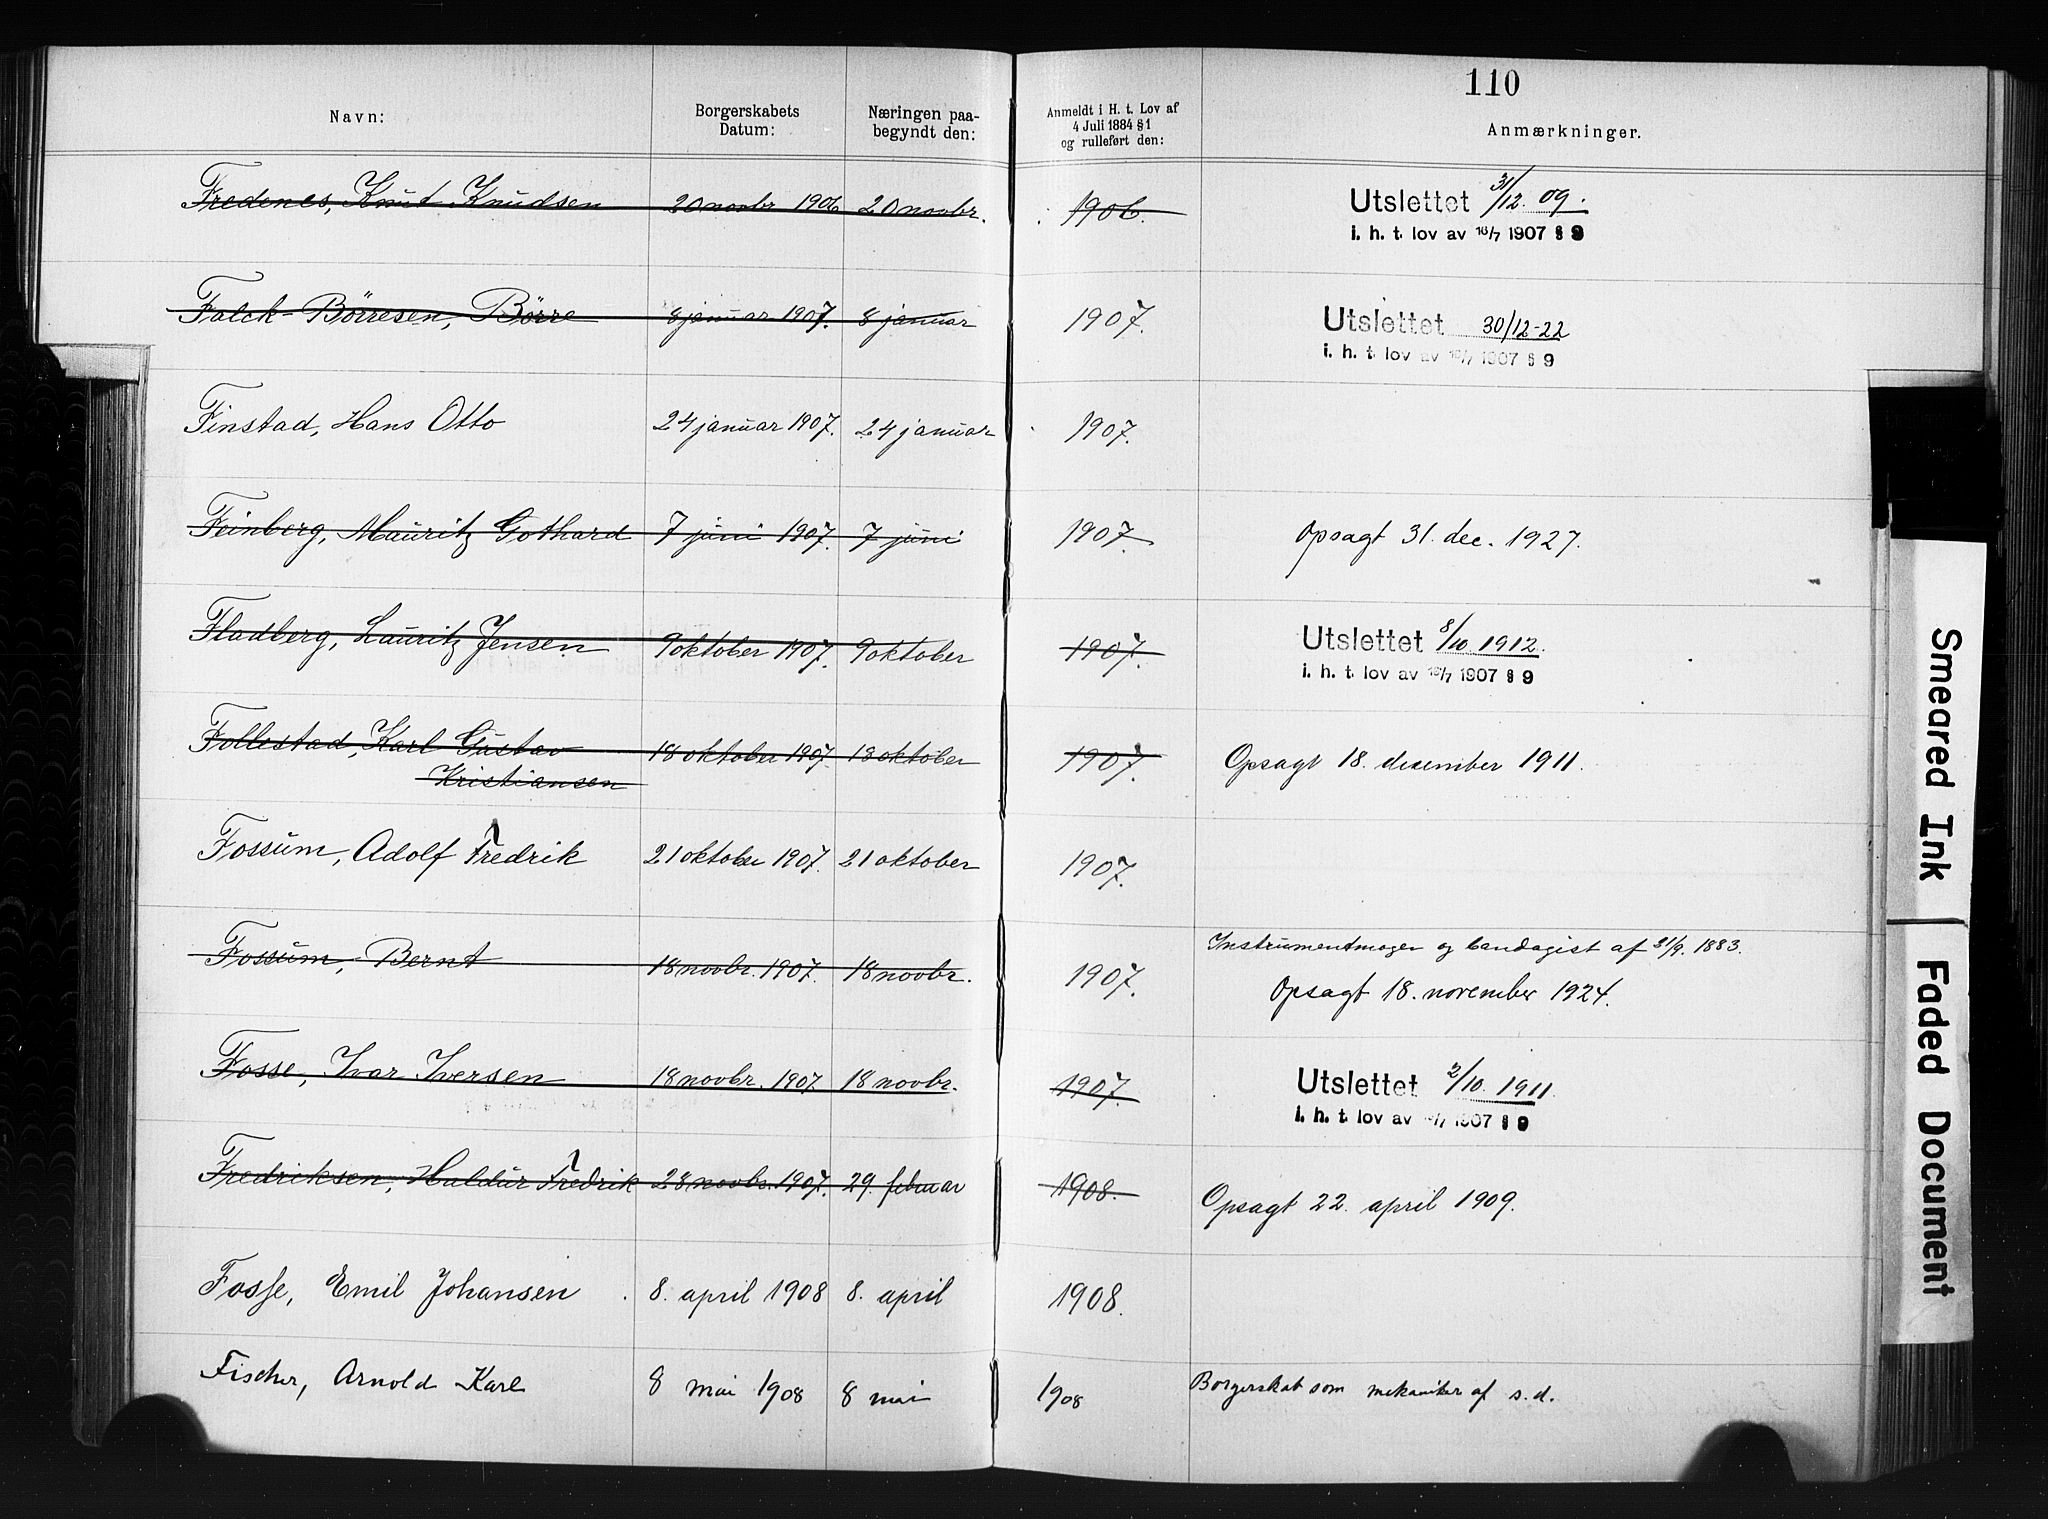 110
Navn: Borgerskabets Datum: Næringen paa- begyndt den: Anmeldt i H. t. Lov af 4 Juli 1884 § 1 og rulleført den: Anmærkninger.
Fredenes, Knut Knudsen 20 novbr 1906 20 novbr. 1906. Utslettet 31/12. 09.
i. h. t. lov av 16/7 1907 § 9
Falck-Börresen, Börre 8 januar 1907. 8 januar 1907. Utslettet 30/12-22
i. h. t. lov av 16/7 1907 § 9
Finstad, Hans Otto 24 januar 1907. 24 januar 1907.
Feinberg, Mauritz Gothard 7 juni 1907. 7 juni 1907. Opsagt 31. dec. 1927.
Fladberg, Lauritz Jensen 9 oktober 1907. 9 oktober 1907. Utslettet 8/10. 1912.
i. h. t. lov av 16/7 1907 § 9
Follestad, Karl Gustav 18 oktober 1907. 18 oktober 1907. Opsagt 18. desember 1911.
Kristiansen
Fossum, Adolf Fredrik 21 oktober 1907. 21 oktober 1907.
Instrumentmager og bandagist af 21/9. 1883.
Fossum, Bernt 18 novbr. 1907. 18 novbr. 1907. Opsagt 18. november 1924.
Fosse, Ivar Iversen 18 novbr. 1907. 18 novbr. 1907. Utslettet 2/10. 1911.
i. h. t. lov av 16/7 1907 § 9
Fredriksen, Haldur Fredrik 28 novbr. 1907. 29. februar 1908. Opsagt 22. april 1909.
Fosse, Emil Johansen 8. april 1908 8. april 1908.
Fischer, Arnold Karl 8 mai 1908 8 mai 1908 Borgerskab som mekaniker af s. d.
Smeared Ink
Faded Document